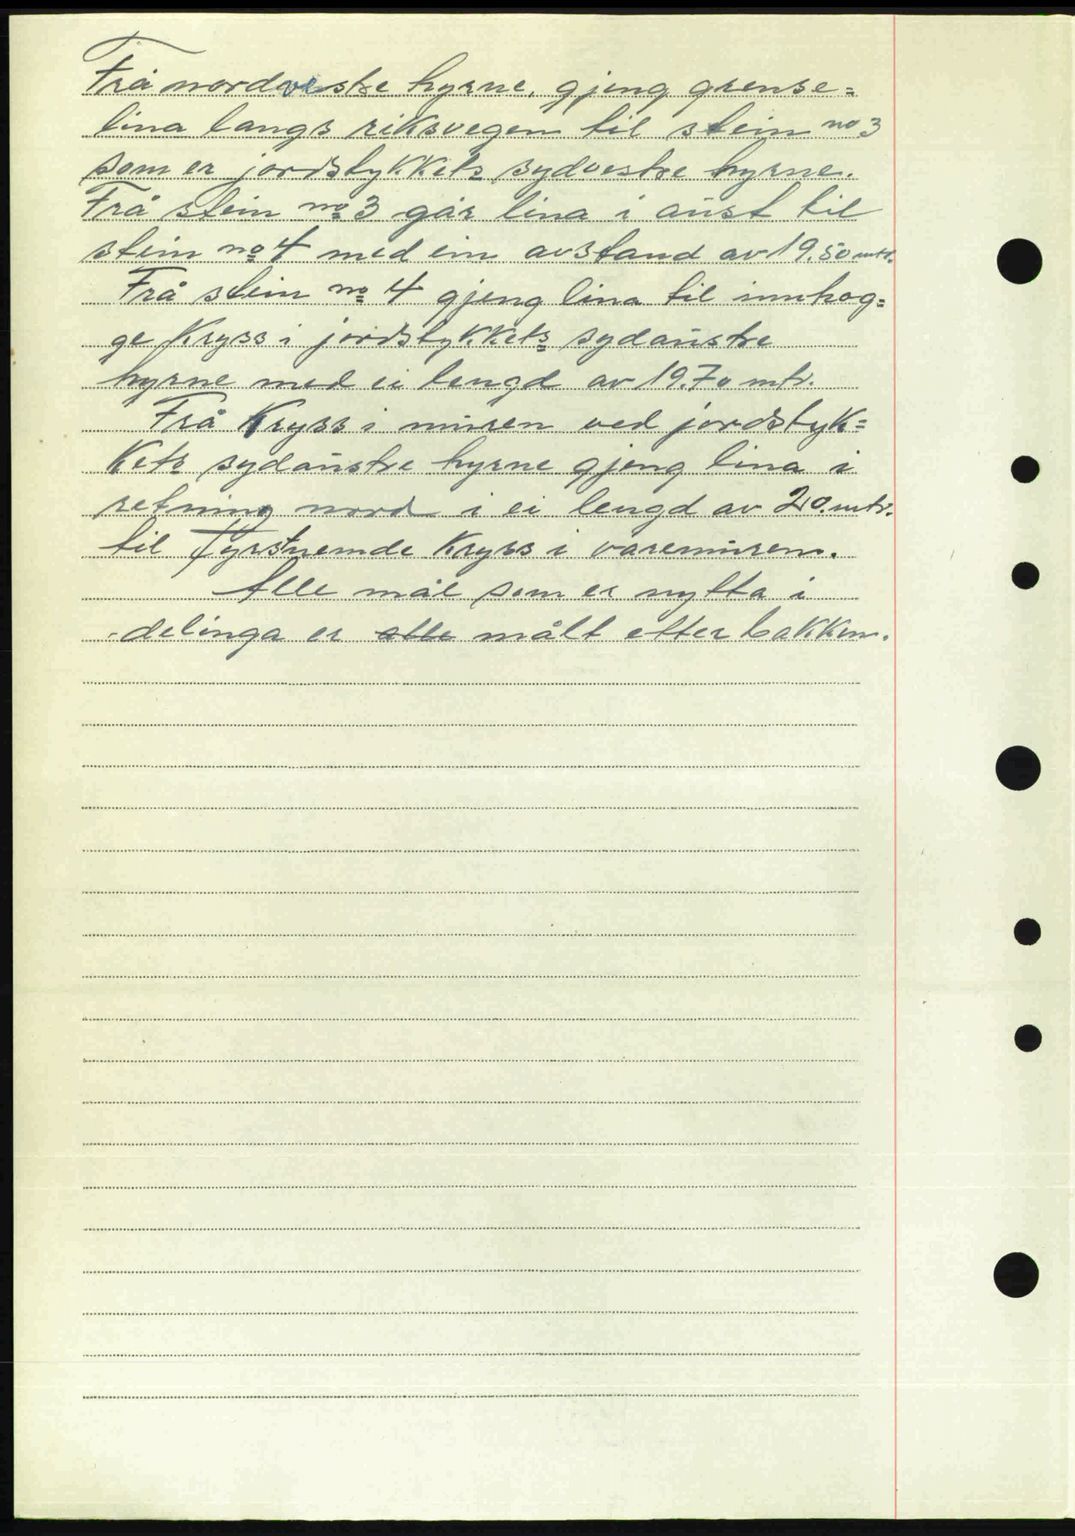 Frå nordvestre hyrne, gjeng grense=
lina langs riksvegen til stein no 3
som er jordstykkets sydvestre hyrne.
Frå stein no 3 går lina i aust til
stein no 4 med ein avstand av 19.50 mtr.
Frå stein no 4 gjeng lina til innhog=
ge Kryss i jordstykkets sydaustre
hyrne med ei lengd av 19.70 mtr.
Frå Kryss i muren ved jordstyk=
kets sydaustre hyrne gjeng lina i
retning nord i ei lengd av 20. mtr.
til fyrstnemde Kryss i varemuren.
Alle mål som er nytta i
delinga er alle målt etter bakken.